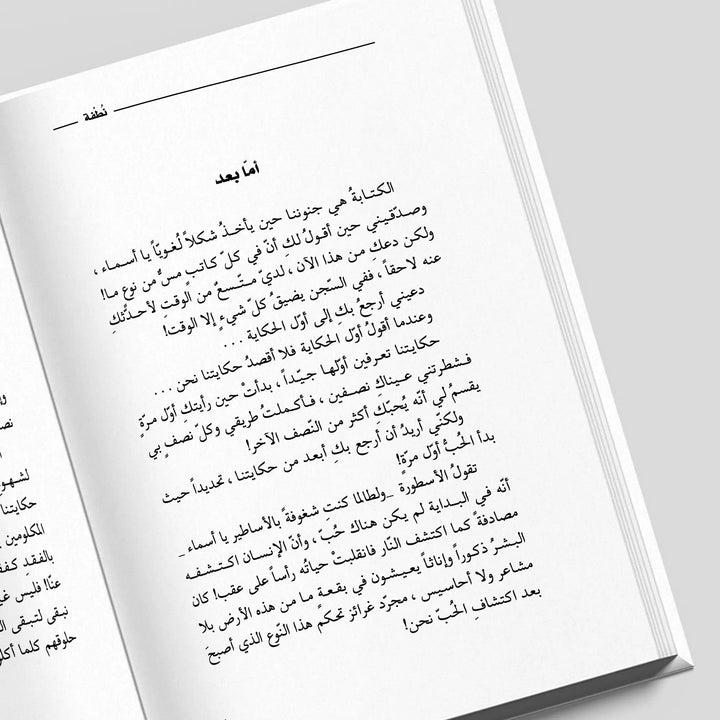 نُطْفة
أمّا بعد
الكتابةُ هي جنوننا حين يأخذُ شكلاً لُغويّاً يا أسماء ،
وصدّقيني حين أقولُ لكِ أنّ في كلّ كاتبٍ مسٌّ من نوعٍ ما!
ولكن دعكِ من هذا الآن ، لديّ متّسعٌ من الوقتِ لأحدّثكِ
عنه لاحقاً ، ففي السّجن يضيقُ كلّ شيءٍ إلا الوقت!
دعيني أرجعُ بكِ إلى أوّل الحكاية . . .
وعندما أقولُ أوّل الحكاية فلا أقصدُ حكايتنا نحن . . .
حكايتنا تعرفين أوّلها جيّداً ، بدأتْ حين رأيتكِ أوّل مرّةٍ
فشطرتني عيناكِ نصفين ، فأكملتُ طريقي وكلّ نصفٍ بي
يقسمُ لي أنّه يُحبّكِ أكثر من النّصف الآخر!
ولكنّي أريدُ أن أرجع بكِ أبعد من حكايتنا ، تحديداً حيث
بدأ الحُبُّ أوّل مرّة!
تقولُ الأسطورة _ولطالما كنتِ شغوفةً بالأساطير يا أسماء _
أنّه في البداية لم يكن هناك حُبّ ، وأنّ الإنسان اكتشفه
مصادفةً كما اكتشف النّار فانقلبتْ حياتُه رأساً على عقب! كان
البشرُ ذكوراً وإناثاً يعيشون في بقعةٍ ما من هذه الأرض بلا
مشاعر ولا أحاسيس ، مجرّد غرائز تحكم هذا النّوع الذي أصبحَ
بعد اكتشافِ الحُبّ نحن!
لشهو
حكايتنا
المكلومين
بالفقدِ كفف
عنّا! فليس غير
نبقى لتبقى ال
حلوقهم كلما أكلو